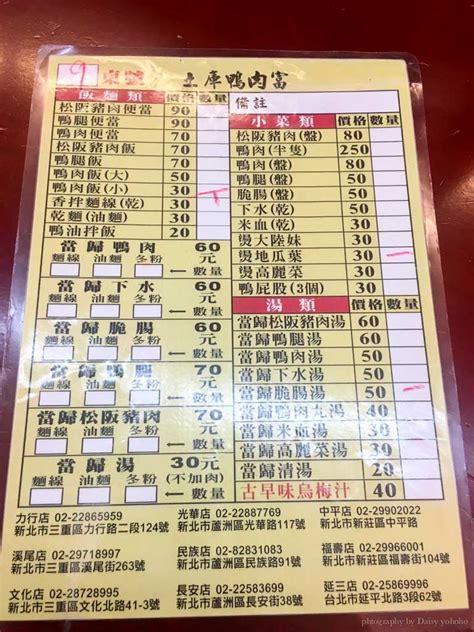 9 桌號 土庫鴨肉富
飯麵類 價格 數量
松阪豬肉便當 90
鴨腿便當 90
鴨肉便當 70
松阪豬肉飯 70
鴨腿飯 70
鴨肉飯(大) 50
鴨肉飯(小) 30
香拌麵線(乾) 30
乾麵(油麵) 30
鴨油拌飯 20
當歸鴨肉 60元
麵線 油麵 冬粉
←數量
當歸下水 60元
麵線 油麵 冬粉
←數量
當歸脆腸 60元
麵線 油麵 冬粉
←數量
當歸鴨腿 70元
麵線 油麵 冬粉
←數量
當歸松阪豬肉 70元
麵線 油麵 冬粉
←數量
當歸湯 30元
麵線 油麵 冬粉 (不加肉)
←數量
備註
小菜類 價格 數量
松阪豬肉(盤) 80
鴨肉(半隻) 250
鴨肉(盤) 80
鴨腿(盤) 50
脆腸(盤) 50
下水(乾) 50
米血(乾) 30
燙大陸妹 30
燙地瓜葉 30
燙高麗菜 30
鴨屁股(3個) 30
湯類 價格 數量
當歸松阪豬肉湯 60
當歸鴨腿湯 60
當歸鴨肉湯 50
當歸下水湯 50
當歸脆腸湯 50
當歸鴨肉丸湯 40
當歸米血湯 30
當歸高麗菜湯 30
當歸清湯 20
古早味烏梅汁 40
力行店 02-22865959
新北市三重區力行路二段124號
光華店 02-22887769
新北市蘆洲區光華路117號
中平店 02-29902022
新北市新莊區中平路
溪尾店 02-29718997
新北市三重區溪尾街263號
民族店 02-82831083
新北市蘆洲區民族路91號
福壽店 02-29966001
新北市新莊區福壽街104號
文化店 02-28728995
新北市三重區文化北路41-3號
長安店 02-22583699
新北市蘆洲區長安街38號
延三店 02-25869996
台北市延平北路3段62號
ptography by Daisy yohoho